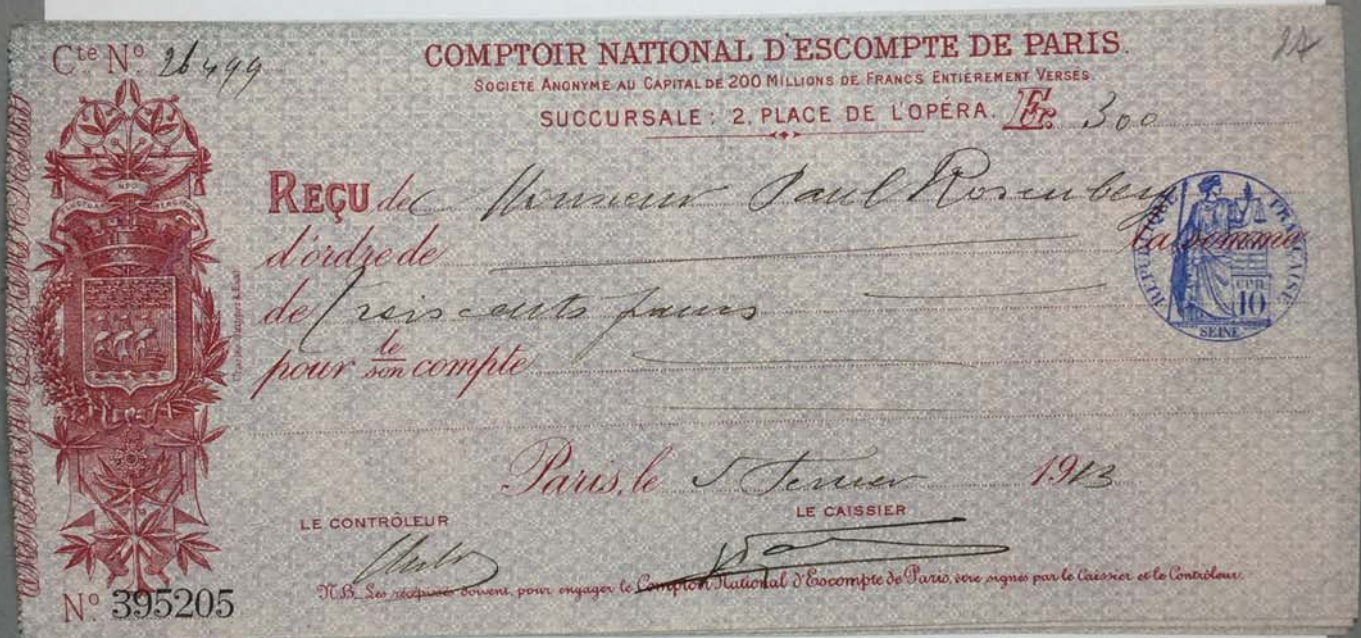 Cte No 26499
COMPTOIR NATIONAL D'ESCOMPTE DE PARIS.
SOCIÉTÉ ANONYME AU CAPITAL DE 200 MILLIONS DE FRANCS ENTIÈREMENT VERSÉS.
SUCCURSALE: 2, PLACE DE L'OPÉRA. Fr. 300
REÇU de Monsieur Paul Rosenberg
d'ordre de la somme
de Trois cents francs
pour le/son compte
RÉPUBLIQUE FRANÇAISE
10
SEINE
Paris, le 5 Fevrier 1913
LE CONTRÔLEUR
LE CAISSIER
N.B. Les récépissés doivent, pour engager le Comptoir National d'Escompte de Paris, être signés par le Caissier et le Contrôleur.
No 395205